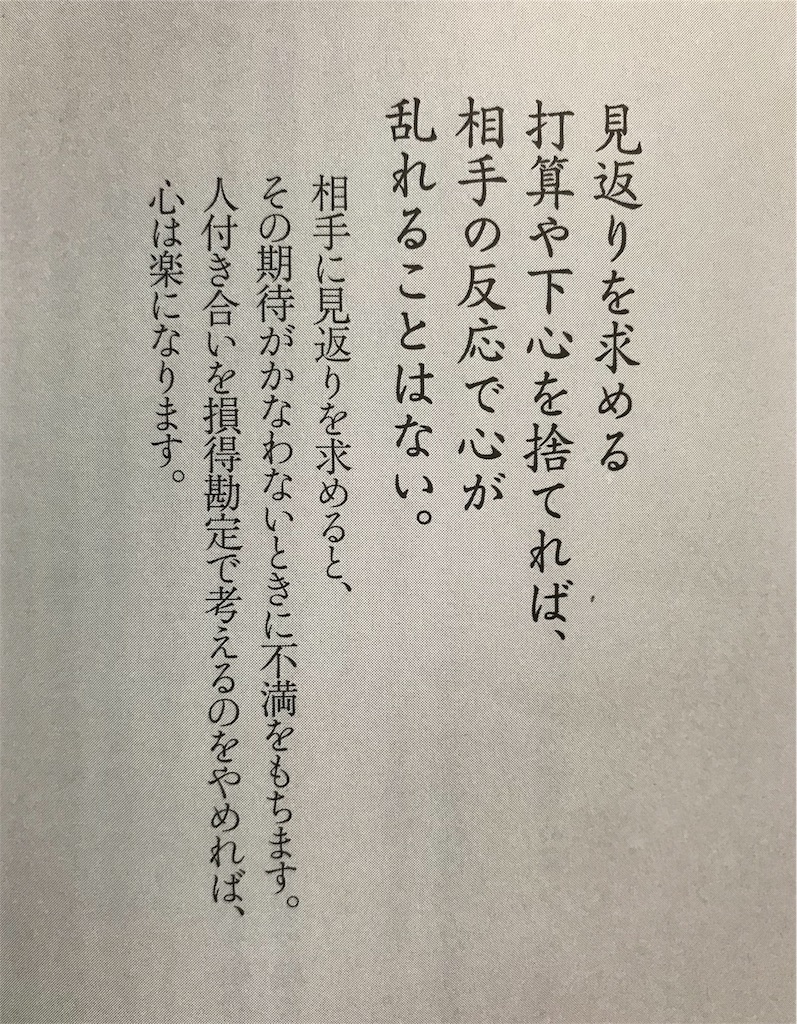 見返りを求める
打算や下心を捨てれば、
相手の反応で心が
乱れることはない。
相手に見返りを求めると、
その期待がかなわないときに不満をもちます。
人付き合いを損得勘定で考えるのをやめれば、
心は楽になります。